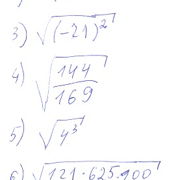 3) √(-21)²
4) √144/169
5) √4³
6) √121·625·900